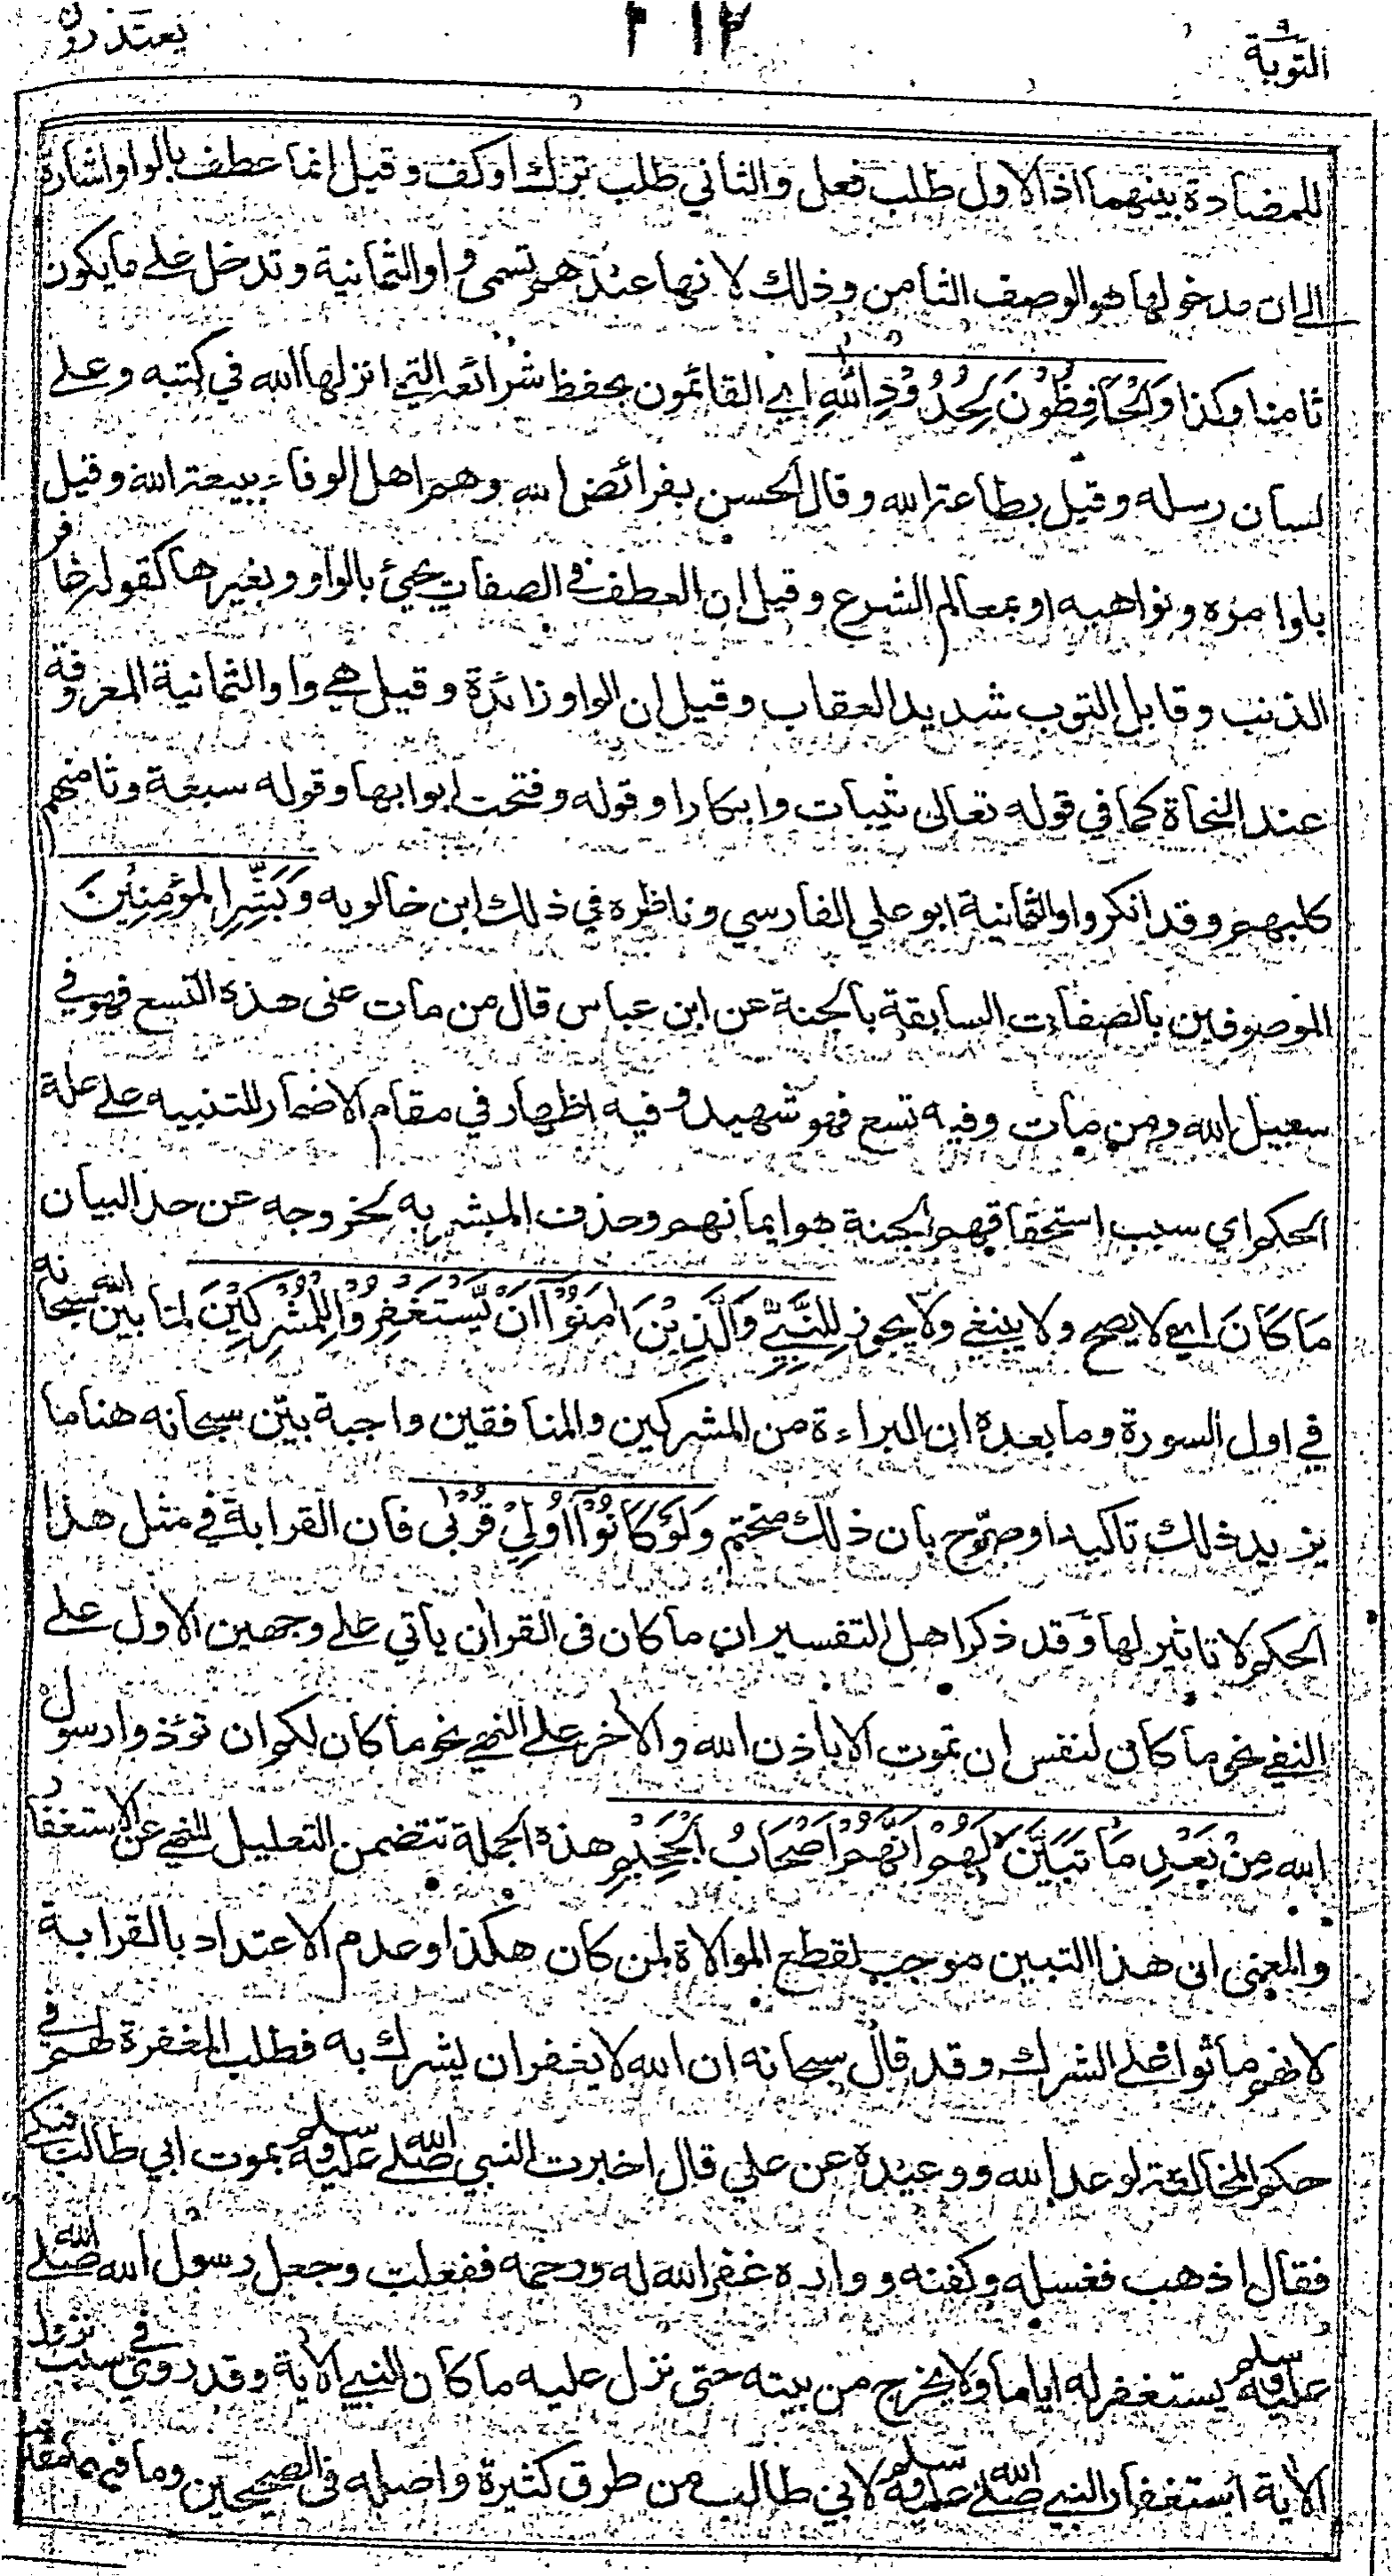 التوبة ٩
٣١٢
يعتذرون
للمضادة بينهما اذ الاول طلب فعل والثاني طلب ترك او كف وقيل انما عطف بالواو اشارة
الى ان مدخولها هو الوصف الثامن وذلك لانها عندهم تسمى واو الثمانية وتدخل على ما يكون
ثامنا وكذا وَالْحَافِظُوْنَ لِحُدُوْدِ اللّٰهِ اي القائمون بحفظ شرائعه التي انزلها الله في كتبه وعلى
لسان رسله وقيل بطاعة الله وقال الحسن بفرائض الله وهم اهل الوفاء ببيعة الله وقيل
باوامره ونواهيه او بمعالم الشرع وقيل ان العطف في الصفات يجيئ بالواو وبغيرها كقوله غافر
الذنب وقابل التوب شديد العقاب وقيل ان الواو زائدة وقيل هي واو الثمانية المعروفة
عند النحاة كما في قوله تعالى ثيبات وابكارا وقوله وفتحت ابوابها وقوله سبعة وثامنهم
كلبهم وقد انكر واو الثمانية ابو علي الفارسي وناظره في ذلك ابن خالويه وَبَشِّرِ الْمُؤْمِنِيْنَ
الموصوفين بالصفات السابقة بالجنة عن ابن عباس قال من مات على هذه التسع فهو في
سبيل الله ومن مات وفيه تسع فهو شهيد وفيه اظهار في مقام الاضمار للتنبيه على علة
الحكم اي سبب استحقاقهم الجنة هو ايمانهم وحذف المبشر به لخروجه عن حد البيان
مَا كَانَ اي لا يصح ولا ينبغي ولا يجوز لِلنَّبِيِّ وَالَّذِيْنَ اٰمَنُوْٓا اَنْ يَّسْتَغْفِرُوْا لِلْمُشْرِكِيْنَ لما بين الله سبحانه
في اول السورة وما بعده ان البراءة من المشركين والمنافقين واجبة بيّن سبحانه هنا ما
يزيد ذلك تاكيدا وصرّح بان ذلك متحتم وَلَوْ كَانُوْٓا اُولِيْ قُرْبٰى فان القرابة في مثل هذا
الحكم لا تاثير لها وقد ذكر اهل التفسير ان ما كان في القران ياتي على وجهين الاول على
النفي نحو ما كان لنفس ان تموت الا باذن الله والاخر على النهي نحو ما كان لكم ان تؤذوا رسول
الله مِنْ بَعْدِ مَا تَبَيَّنَ لَهُمْ اَنَّهُمْ اَصْحَابُ الْجَحِيْمِ هذه الجملة تتضمن التعليل للنهي عن الاستغفار
والمعنى ان هذا التبين موجب لقطع الموالاة لمن كان هكذا وعدم الاعتداد بالقرابة
لانهم ماتوا على الشرك وقد قال سبحانه ان الله لا يغفر ان يشرك به فطلب المغفرة لهم في
حكم المخالفة لوعد الله ووعيده عن علي قال اخبرت النبي صلى الله عليه وسلم بموت ابي طالب فبكى
فقال اذهب فغسله وكفنه وواره غفر الله له ورحمه ففعلت وجعل رسول الله صلى الله
عليه وسلم يستغفر له اياما ولا يخرج من بيته حتى نزل عليه ما كان للنبي الاية وقد روي في سبب نزول
الاية استغفار النبي صلى الله عليه وسلم لابي طالب من طرق كثيرة واصله في الصحيحين وما فيهما مقدم